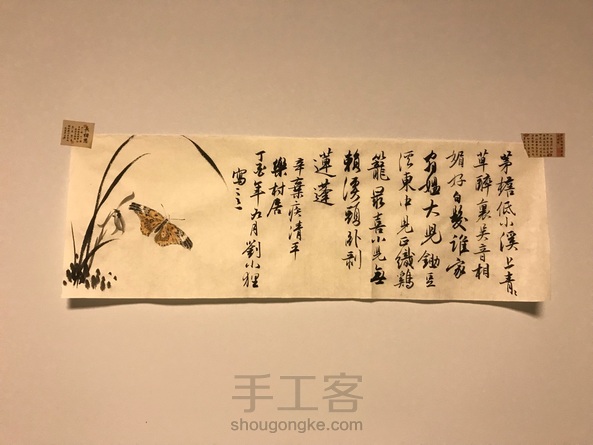 茅檐低小溪上青々
草醉裏吴音相
媚好白髮誰家
翁媪大兒鋤豆
溪東中兒正織鷄
籠最喜小兒無
賴溪頭卧剥
蓮蓬
辛棄疾清平
樂村居
丁酉年五月劉小狸
寫
手工客
shougongke.com